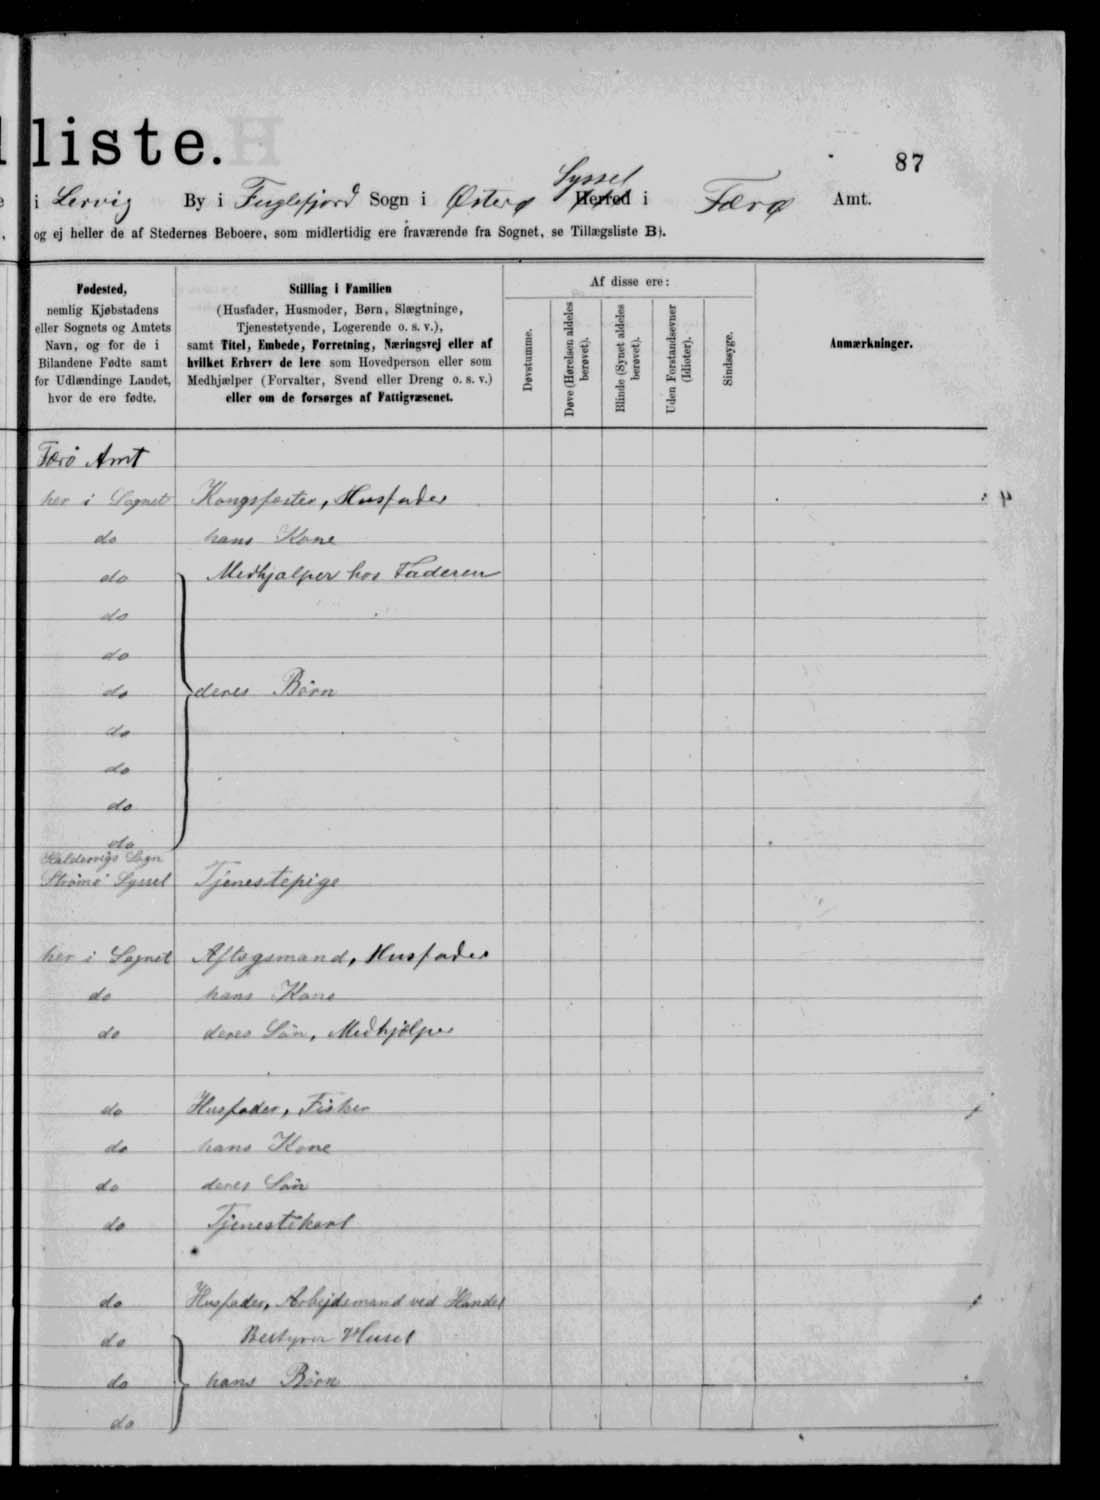 liste.
87
i Lervig By i Fuglefjord Sogn i Østerø Syssel Herred i Færø Amt.
og ej heller de af Stedernes Beboere, som midlertidig ere fraværende fra Sognet, se Tillægsliste B).
Fødested,
nemlig Kjøbstadens
eller Sognets og Amtets
Navn, og for de i
Bilandene Fødte samt
for Udlændinge Landet,
hvor de ere fødte.
Stilling i Familien
(Husfader, Husmoder, Børn, Slægtninge,
Tjenestetyende, Logerende o. s. v.),
samt Titel, Embede, Forretning, Næringsvej eller af
hvilket Erhverv de leve som Hovedperson eller som
Medhjælper (Forvalter, Svend eller Dreng o. s. v.)
eller om de forsørges af Fattigvæsenet.
Af disse ere:
Døvstumme.
Døve (Hørelsen aldeles
berøvet).
Blinde (Synet aldeles
berøvet).
Uden Forstandsevner
(Idioter).
Sindssyge.
Anmærkninger.
Færö Amt
her i Sognet Kongsfæster, Husfader
do hans Kone
do Medhjælper hos Faderen
do
do
do deres Börn
do
do
do
do
Sogn
Strömö Syssel Tjenestepige
her i Sognet Aftægsmand, Husfader
do hans Kone
do deres Sön, Medhjölper
do Husfader, Fisker
do hans Kone
do deres Sön
do Tjenestekarl
do Husfader, Arbejdsmand ved Handel
do Bestyrer Huset
do hans Börn
do